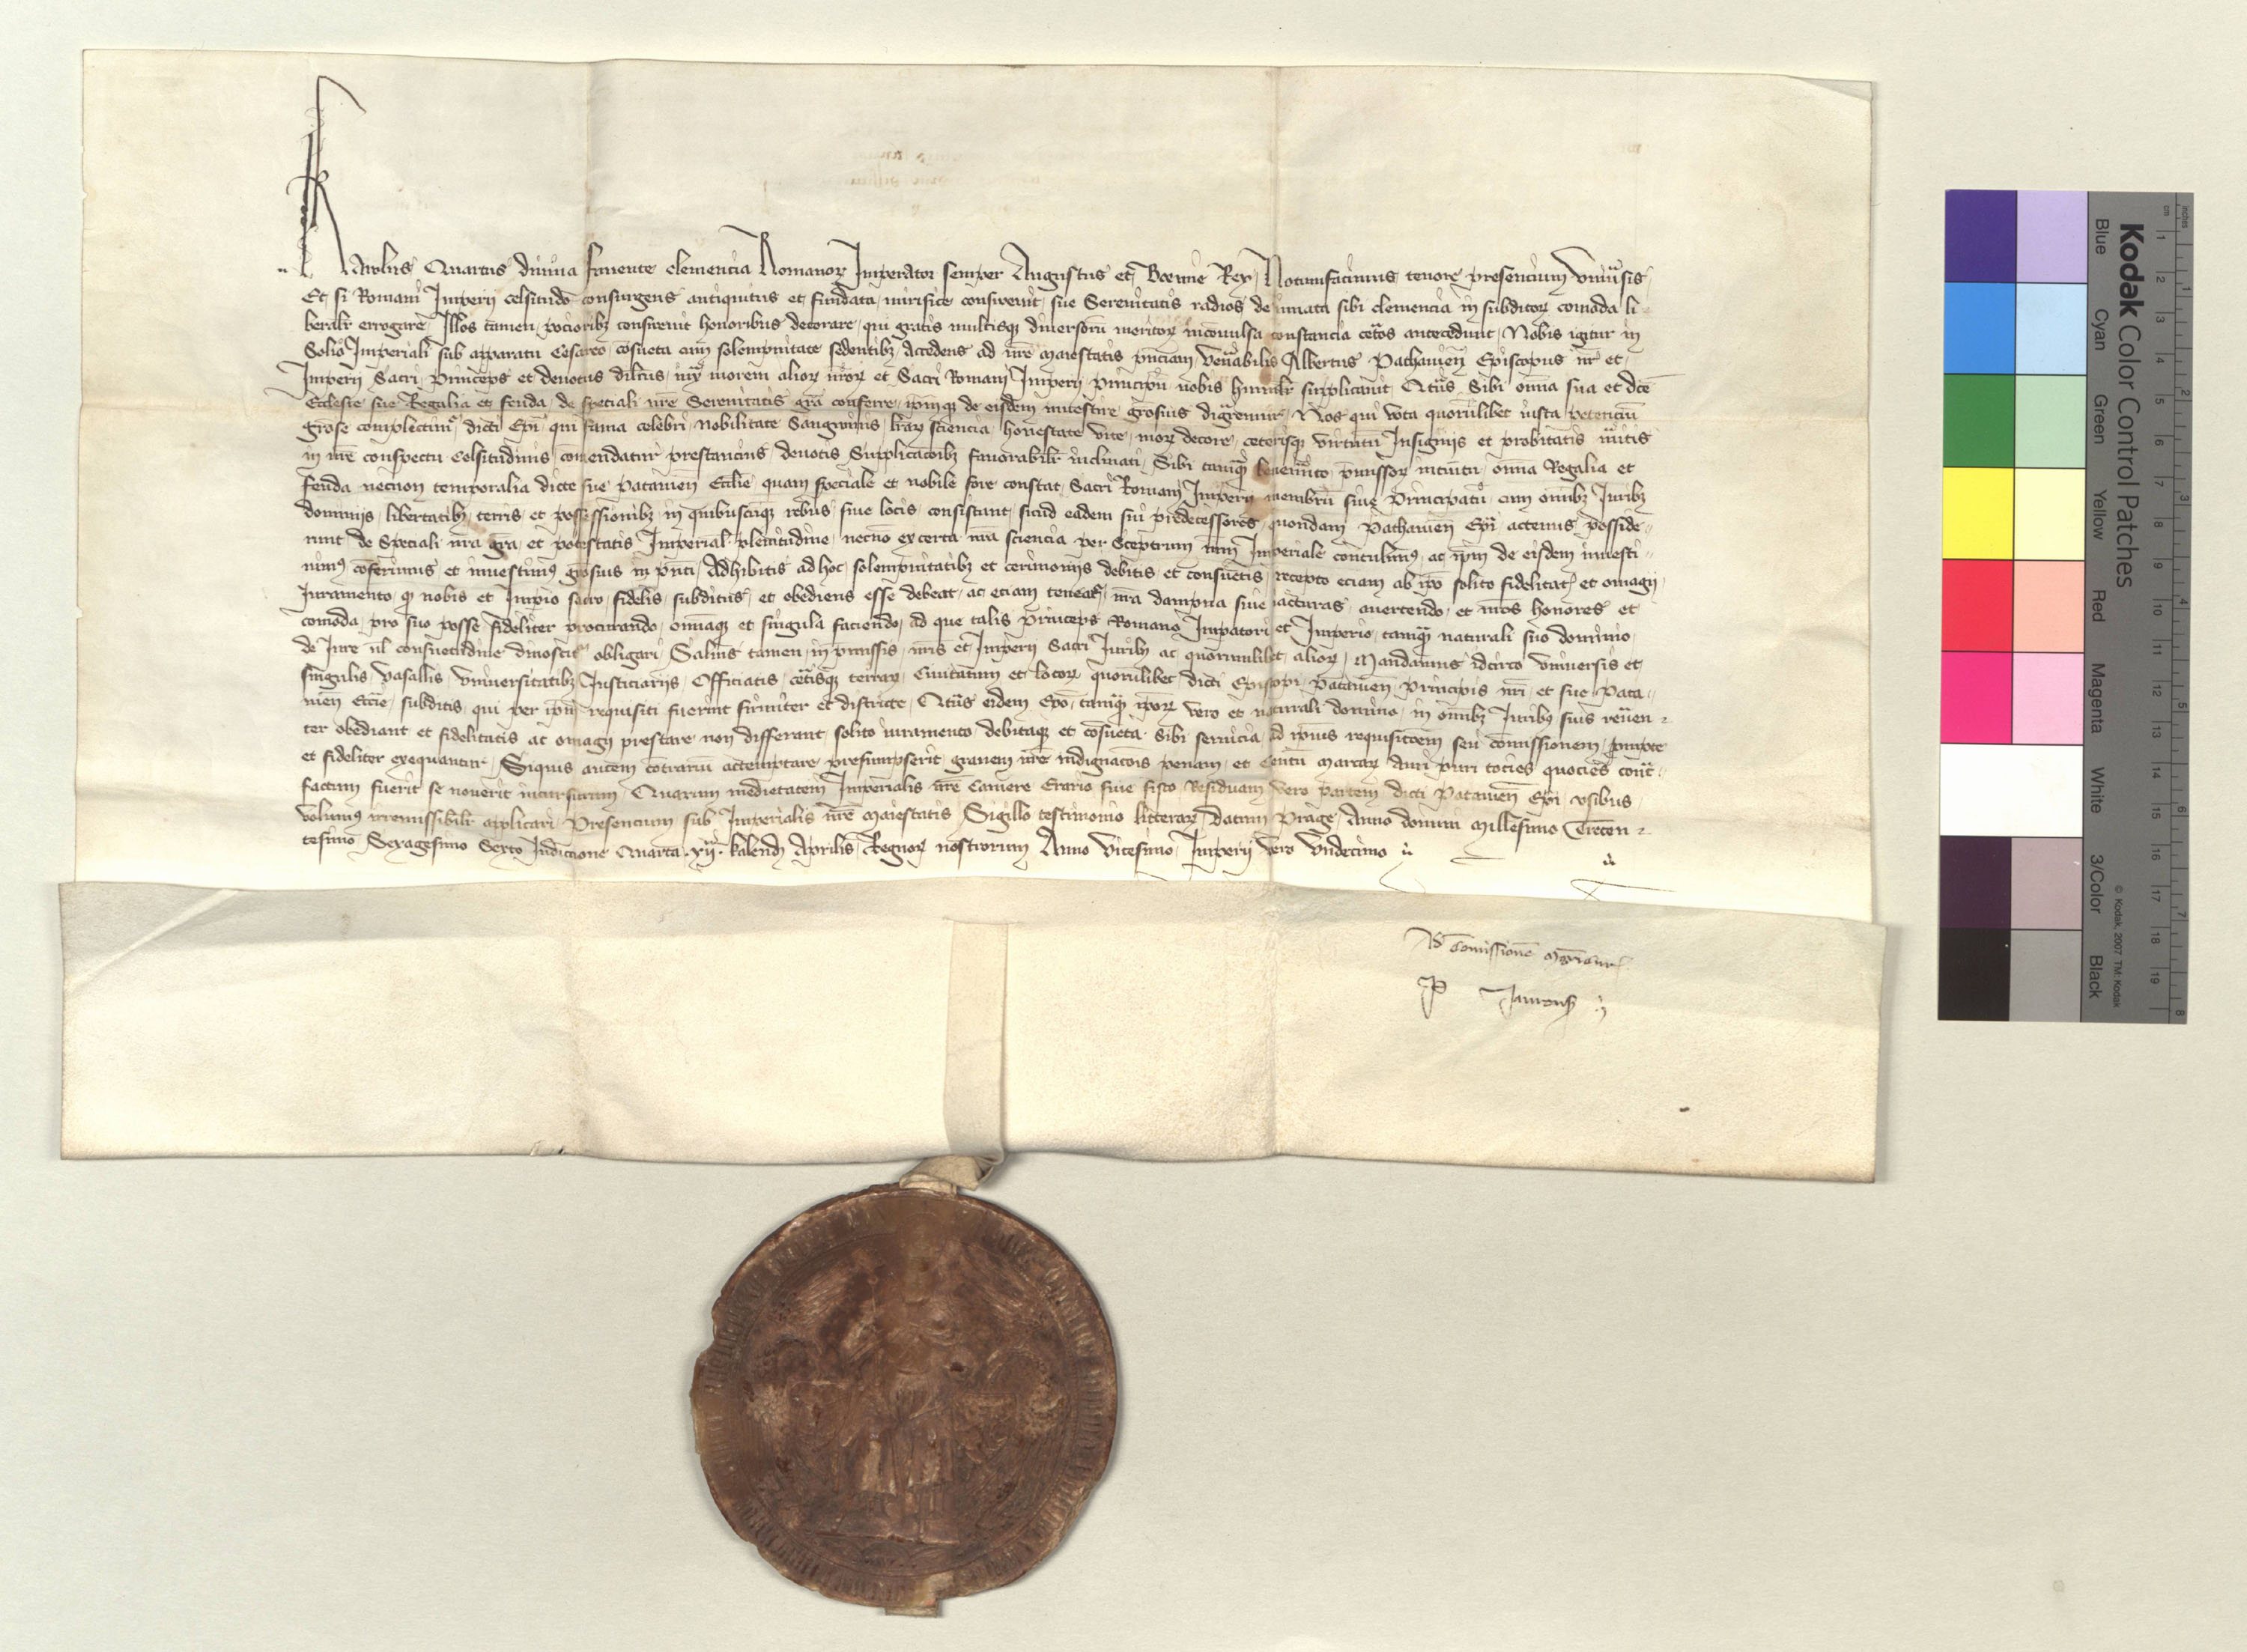 Karolus Quartus diuina fauente clemencia Romanoꝝ Imperator semper Augustus et Boemie Rex Notumfacimus tenore presencium vniuersis
Et si Romani Imperij celsitudo consurgens antiquitus et fundata mirifice consueuit sue Serenitatis radios de innata sibi clemencia in subditoꝝ comoda li-
beralr̄ errogare Illos tamen pocioribꝫ consueuit honoribus decorare qui gratis multisqꝫ diuersorū meritoꝝ inconuulsa constancia cet̄os antecedunt Nobis igitur in
Solio Imperiali sub apparatu Cesareo cosueta cum solempnitate sedentibꝫ Accedens ad nr̄e Maiestatis pn̄ciam Ven̄abilis Albertus Pathauien̄ Episcopus nr̄ et
Imperij Sacri Princeps et deuotus dilc̄us morem alioꝝ nr̄oꝝ et Sacri Romani Imperij Principū nobis humilr̄ supplicauit Qt̄us Sibi om̄ia sua et dc̄e
Ecclesie sue Regalia et feuda de speciali nr̄e Serenitatis gr̄a conferre ip̄mqꝫ de eisdem inuestire gr̄osius dignaremur Nos qui vota quorūlibet iusta petenciū
gr̄ose complectimur dicti Ep̄i qui fama celebri nobilitate Sangwinis lr̄aꝝ sciencia honestate vite moꝝ decore ceterisqꝫ virtutū Insignijs et probitatis meritis
in nr̄e conspectu Celsitudinis comendatur prestancius deuotis Supplicac̄oibꝫ fauorabilr̄ inclinati Sibi tamqꝫ benem̄ito premissoꝝ intuitu om̄ia Regalia et
feuda necnon temporalia dicte sue Patauien̄ Ecclie quam speciale et nobile fore constat Sacri Romani Imperij membrū siue Principatū cum om̄ibꝫ Iuribꝫ
dominijs libertatibꝫ terris et possessionibꝫ in quibuscūqꝫ rebus siue locis consistant sicud eadem sui predecessores quondam Pathauien̄ Ep̄i actenus posside-
runt de Speciali nr̄a gr̄a et potestatis Imperial plenitudine necnō ex certa nr̄a sciencia per Sceptrum nr̄m Imperiale contulimꝰ ac ip̄m de eisdem inuesti-
uimꝰ coferimus et inuestimꝰ gr̄osius in pn̄ti Adhibitis ad hoc solempnitatibꝫ et cerimonijs debitis et consuetis recepto eciam ab ip̄o solito fidelitat̄ et omagij
Iuramento ꝙ nobis et Impio sacro fidelis subditus et obediens esse debeat ac eciam teneat̄ nr̄a dampna siue iacturas auertendo et nr̄os honores et
comoda pro suo posse fideliter procurando om̄iaqꝫ et singula faciendo ad que talis Princeps Romano Impatori et Imperio tamqꝫ naturali suo domino
de Iure ul̄ consuetudine dinoscit̄ obligari Saluis tamen in premissis nr̄is et Imperij Sacri Iuribꝫ ac quorumlibet alioꝝ Mandamus idcirco vniuersis et
singulis vasallis vniuersitatibꝫ Iusticiarijs Officiatis cet̄isqꝫ terraꝝ Ciuitatum et locoꝝ quorūlibet dicti Episcopi Patauien̄ Principis nr̄i et sue Pata-
uien̄ Ecc̄ie subditis qui per ip̄m requisiti fuerint firmiter et districte Qt̄us eidem Ep̄o tamqꝫ ip̄oꝝ vero et naturali domino in om̄ibꝫ Iuribꝰ suis reuen-
ter obediant et fidelitatis ac omagij prestare non differant solito iuramento debitaqꝫ et cosueta Sibi seruicia ad ip̄ius requisic̄oem seu comissionem prompte
et fideliter exequantur Siquis autem cōtrariū actemptare presumpserit grauem nr̄e indignac̄ois penam et Centū marcaꝝ Auri puri tocies quocies cont̄-
factum fuerit se nouerit incursurum Quarum medietatem Imperialis nr̄e Camere Erario siue fisco Residuam vero partem dicti Patauien̄ Ep̄i vsibus
volumꝰ irremissibilr̄ applicari Presencium sub Imperialis nr̄e Maiestatis Sigillo testimonio litteraꝝ Datum Prage Anno domini Millesimo Trecen-
tesimo Sexagesimo Sexto Indictione Quarta xij kalend Aprilis Regnoꝝ nostrorum Anno Vicesimo Imperij vero Vndecimo
Ad Comissionē
P Jaurens
Kodak Color Control Patches
Blue Cyan Green Yellow Red Magenta White 3/Color Black
© Kodak, 2007 TM: Kodak
inches 1 2 3 4 5 6 7 8
cm 1 2 3 4 5 6 7 8 9 10 11 12 13 14 15 16 17 18 19